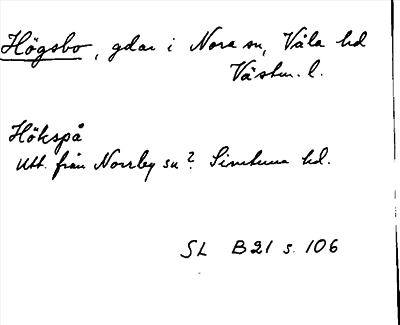 Högsbo, gdar i Nora sn, Våla hd
Västm. l.
Hökspå
Utt. från Norrby sn? Simtuna hd.
SL B21 s. 106